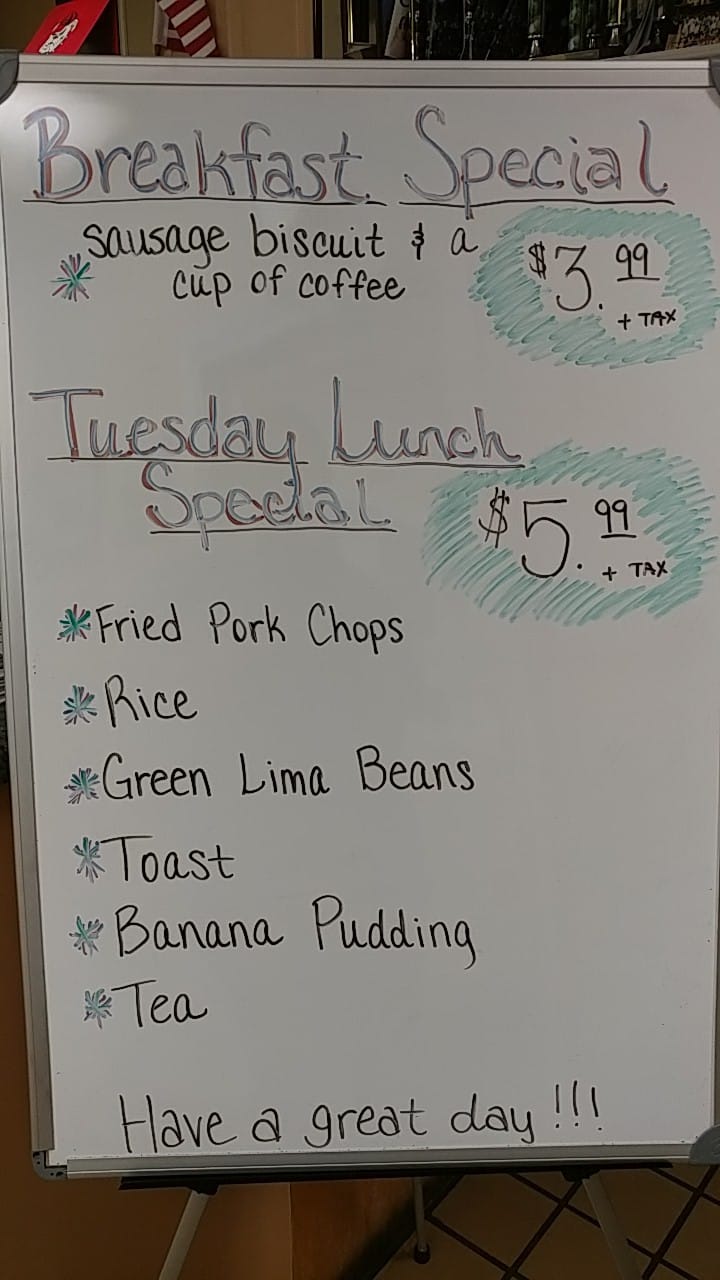 Breakfast Special
sausage biscuit & a
cup of coffee
$3.99
+ TAX
Tuesday Lunch
Special
$5.99
+ TAX
*Fried Pork Chops
*Rice
*Green Lima Beans
*Toast
*Banana Pudding
*Tea
Have a great day!!!